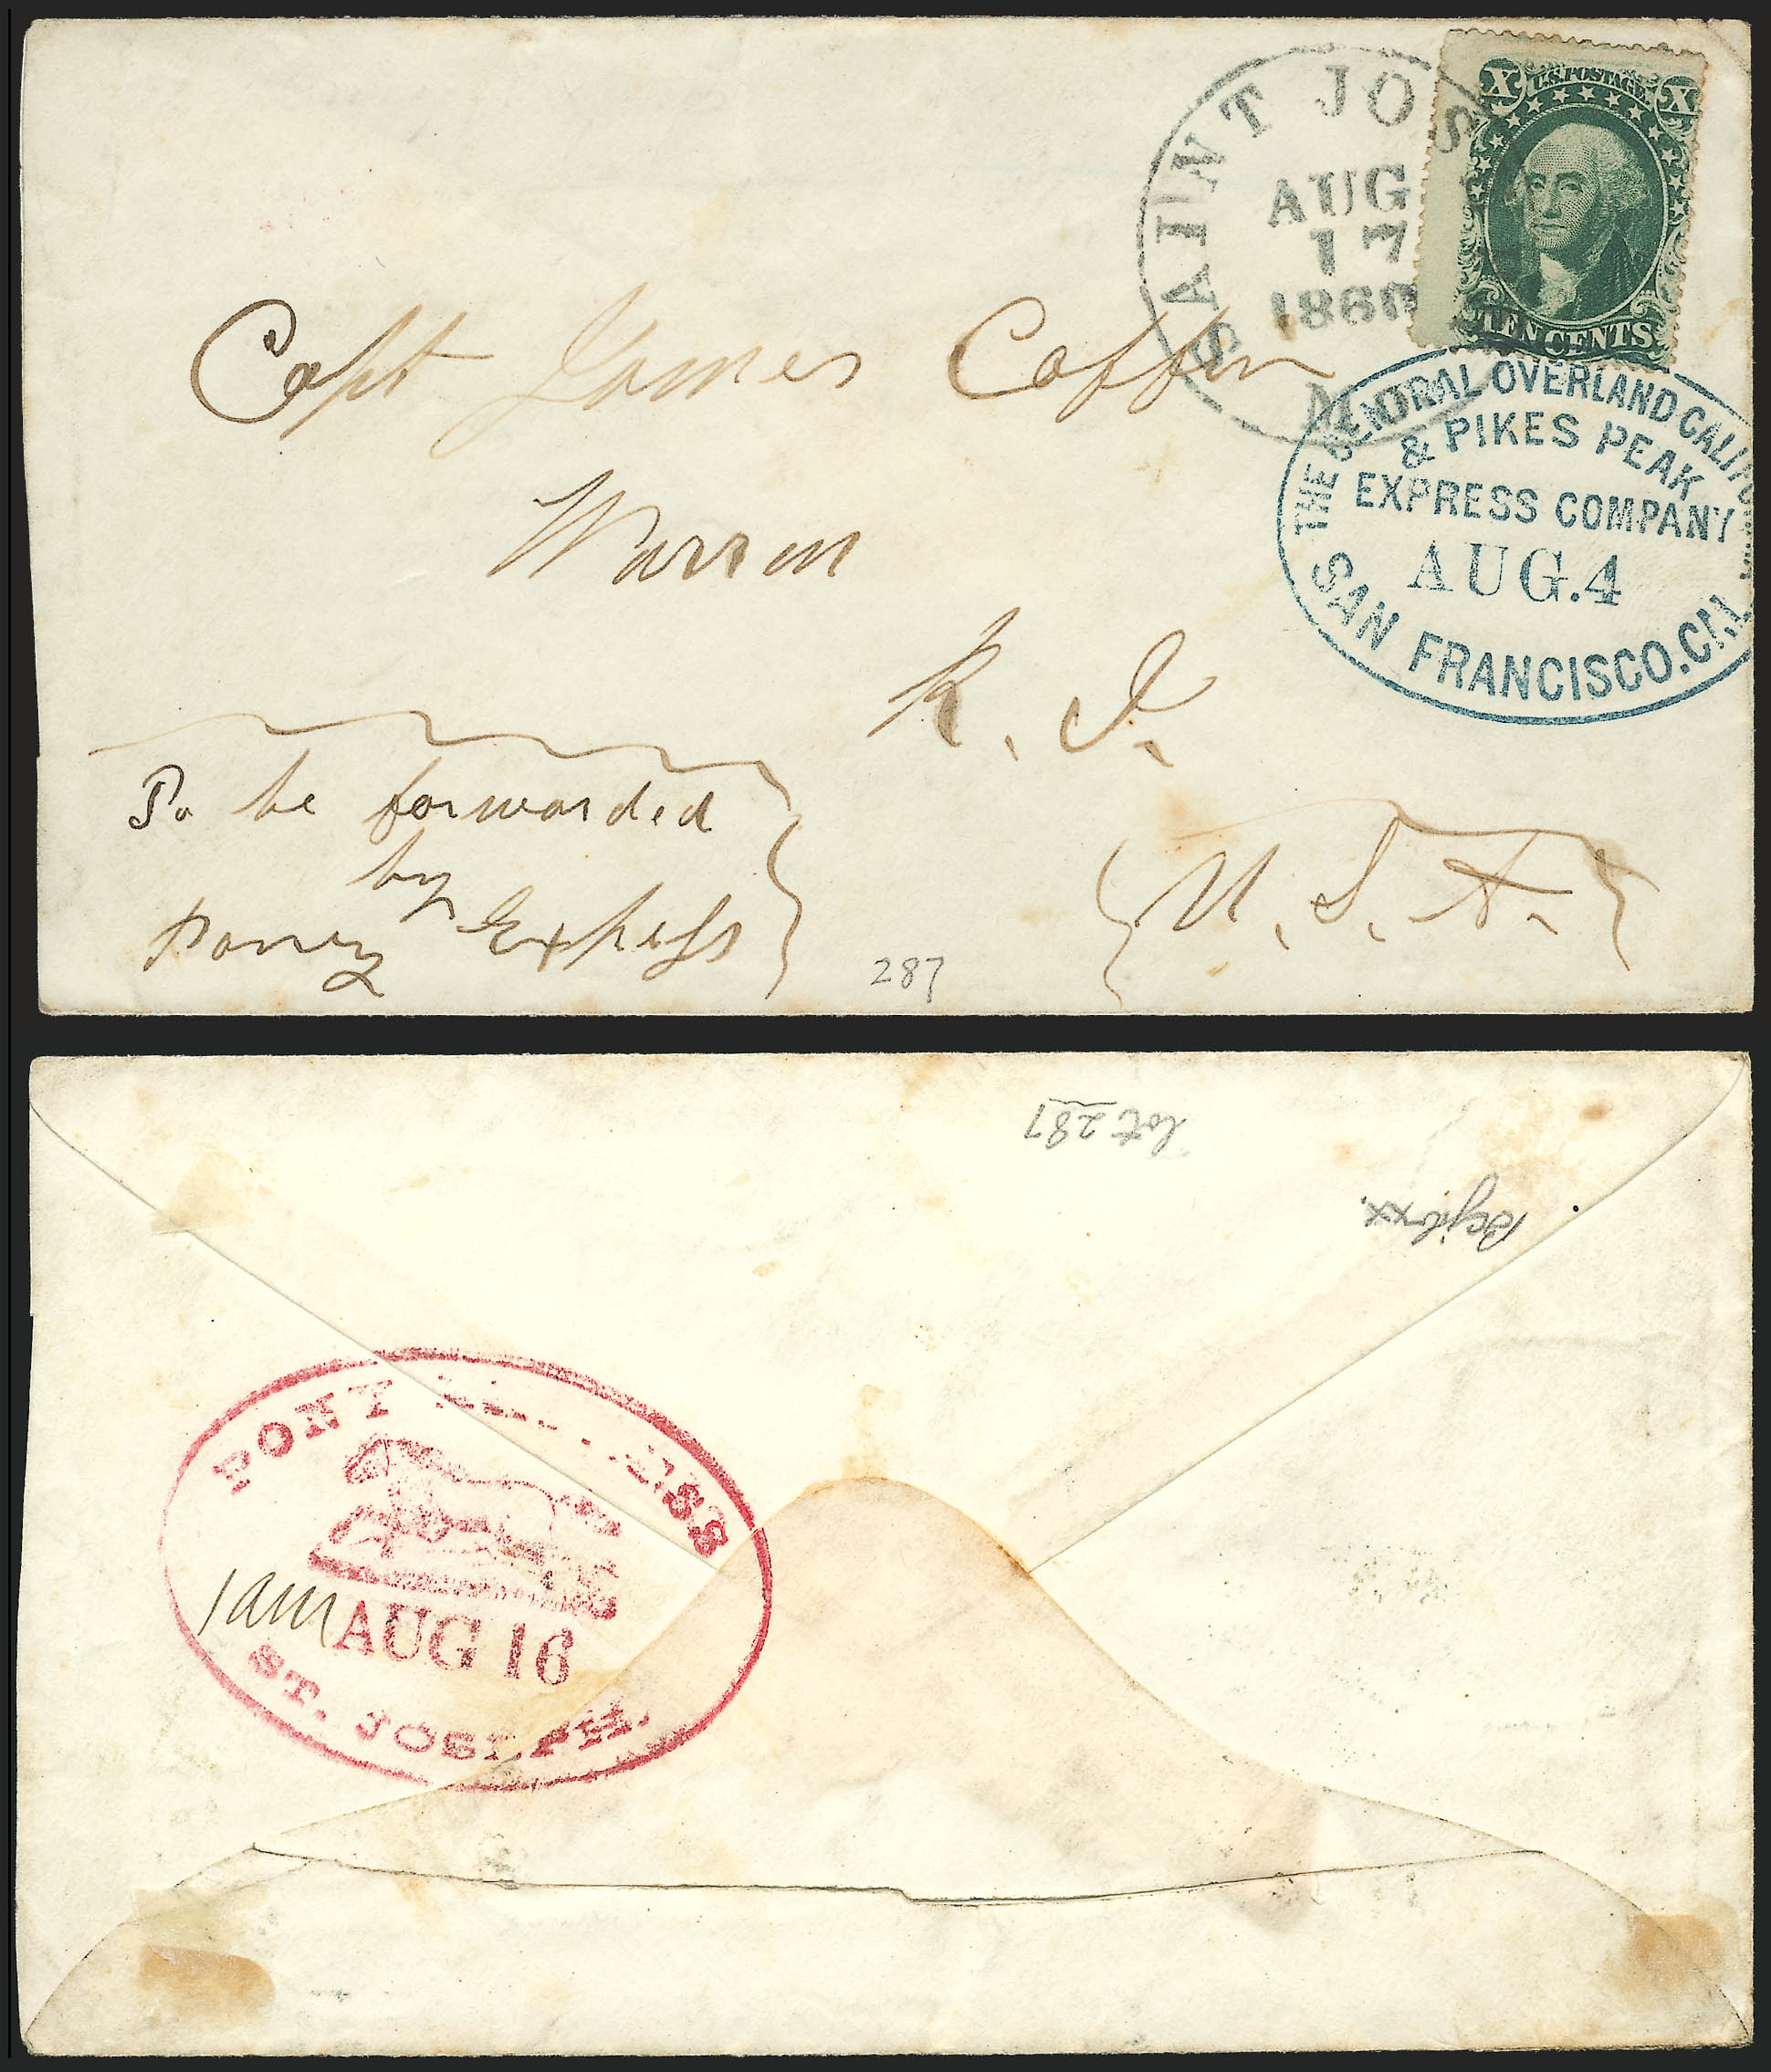 SAINT JOS
AUG
17
1860
MO.
X U.S. POSTAGE X
TEN CENTS
THE CENTRAL OVERLAND CALIFORNIA
& PIKES PEAK
EXPRESS COMPANY
AUG.4
SAN FRANCISCO.CAL
Capt James Coffin
Warren
R. I.
To be forwarded
by
Poney Express
U. S. A.
287
lot 287
PONY EXPRESS
1am AUG 16
ST. JOSEPH.